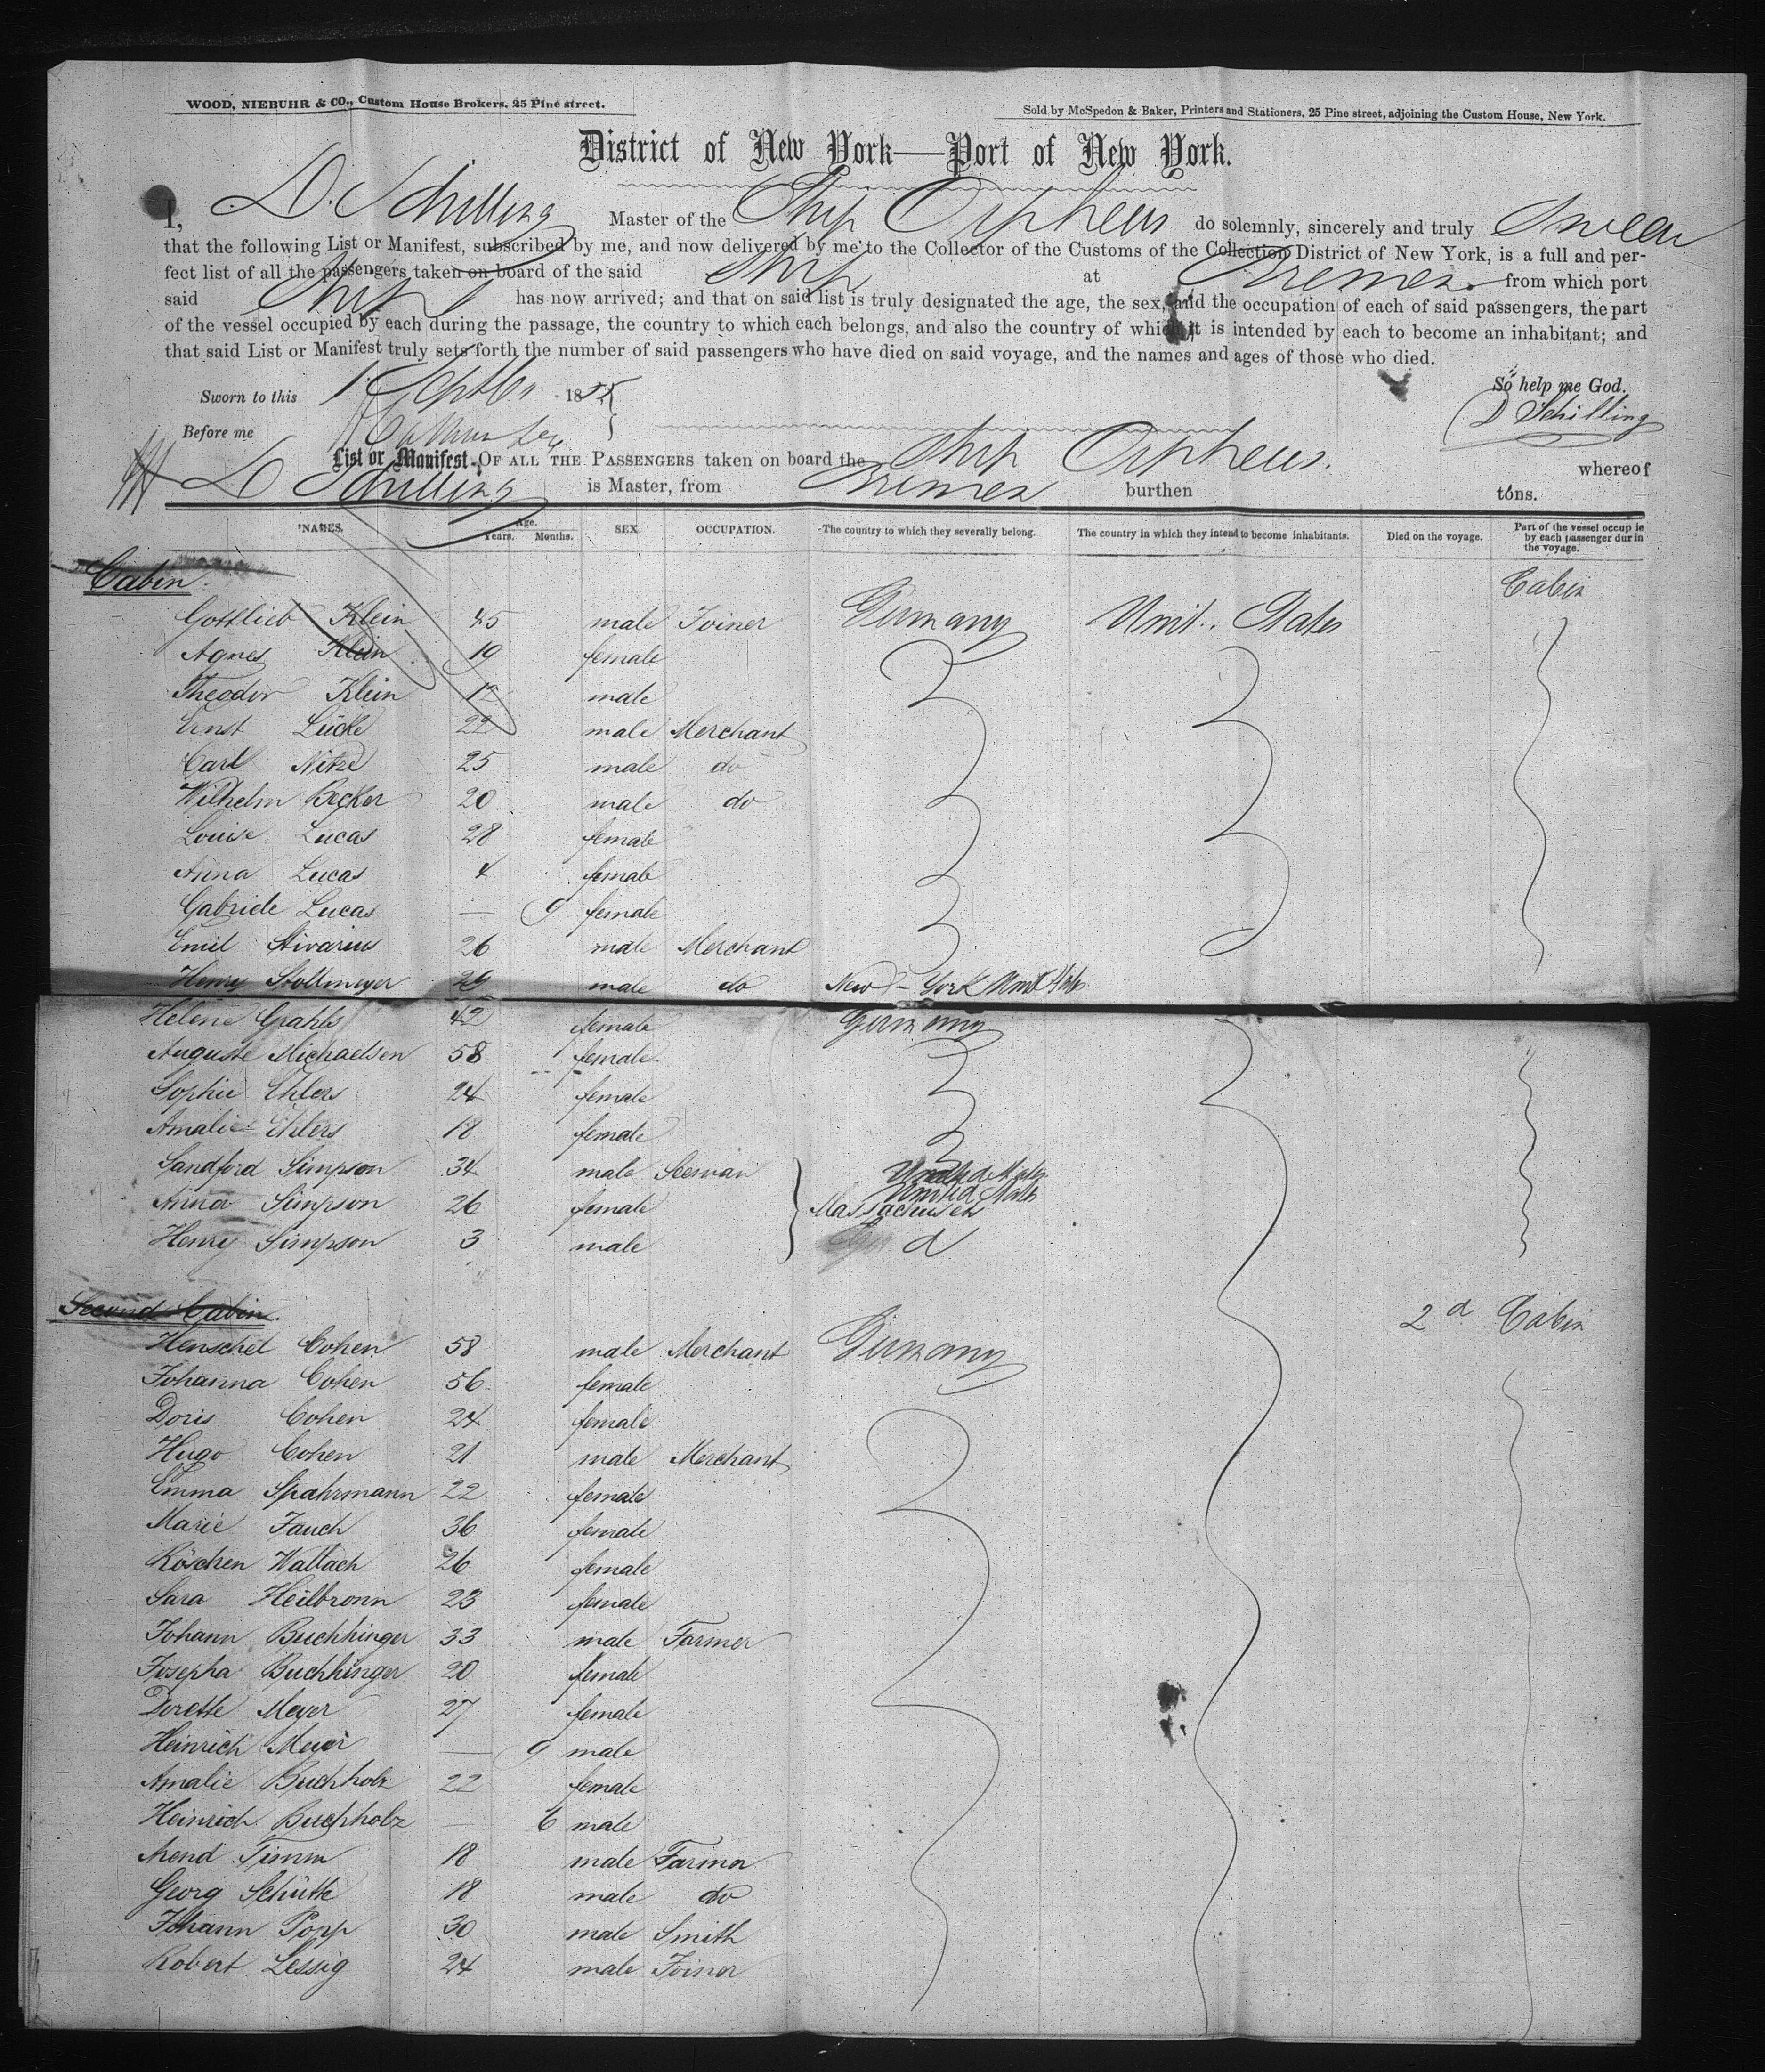 WOOD, NIEBUHR & CO., Custom House Brokers, 25 Pine street.
Sold by McSpedon & Baker, Printers and Stationers, 25 Pine street, adjoining the Custom House, New York.
District of New York—Port of New York.
I, D. Schilling Master of the Ship Orpheus do solemnly, sincerely and truly Swear
that the following List or Manifest, subscribed by me, and now delivered by me to the Collector of the Customs of the Collection District of New York, is a full and per-
fect list of all the passengers taken on board of the said Ship at Bremen from which port
said Ship has now arrived; and that on said list is truly designated the age, the sex, and the occupation of each of said passengers, the part
of the vessel occupied by each during the passage, the country to which each belongs, and also the country of which it is intended by each to become an inhabitant; and
that said List or Manifest truly sets forth the number of said passengers who have died on said voyage, and the names and ages of those who died.
Sworn to this 1 Septbr 1855 So help me God.
Before me D Schilling
List or Manifest OF ALL THE PASSENGERS taken on board the Ship Orpheus. whereof
D Schilling is Master, from Bremen burthen tons.
NAMES. Age. Years. Months. SEX. OCCUPATION. The country to which they severally belong. The country in which they intend to become inhabitants. Died on the voyage. Part of the vessel occup ie by each passenger dur in the voyage.
Cabin. Cabin
Gottlieb Klein 45 male Joiner Germany Unit. States
Agnes Klein 19 female
Theodor Klein 12 male
Ernst Lücke 22 male Merchant
Carl Nitze 25 male do
Wilhelm Becker 20 male do
Louise Lucas 28 female
Anna Lucas 4 female
Gabriele Lucas — 9 female
Emil Stivarius 26 male Merchant
Henry Stollmeyer 29 male do New-York Unit States
Helene Grahls 42 female Germany
Auguste Michaelsen 58 female
Sophie Ehlers 24 female
Amalie Ehlers 18 female
Sandford Simpson 34 male Seeman United States
United States
Anna Simpson 26 female Massachusets
Henry Simpson 3 male d
Second Cabin. 2d Cabin
Henschel Cohen 58 male Merchant Germany
Johanna Cohen 56 female
Doris Cohen 24 female
Hugo Cohen 21 male Merchant
Emma Spahrmann 22 female
Marie Jauch 36 female
Röschen Wallach 26 female
Sara Heilbronn 23 female
Johann Buchhinger 33 male Farmer
Josepha Buchhinger 20 female
Dorette Meyer 27 female
Heinrich Meyer — 9 male
Amalie Buchholz 22 female
Heinrich Buchholz — 6 male
Arend Timm 18 male Farmer
Georg Schütte 18 male do
Johann Popp 30 male Smith
Robert Lessig 24 male Joiner